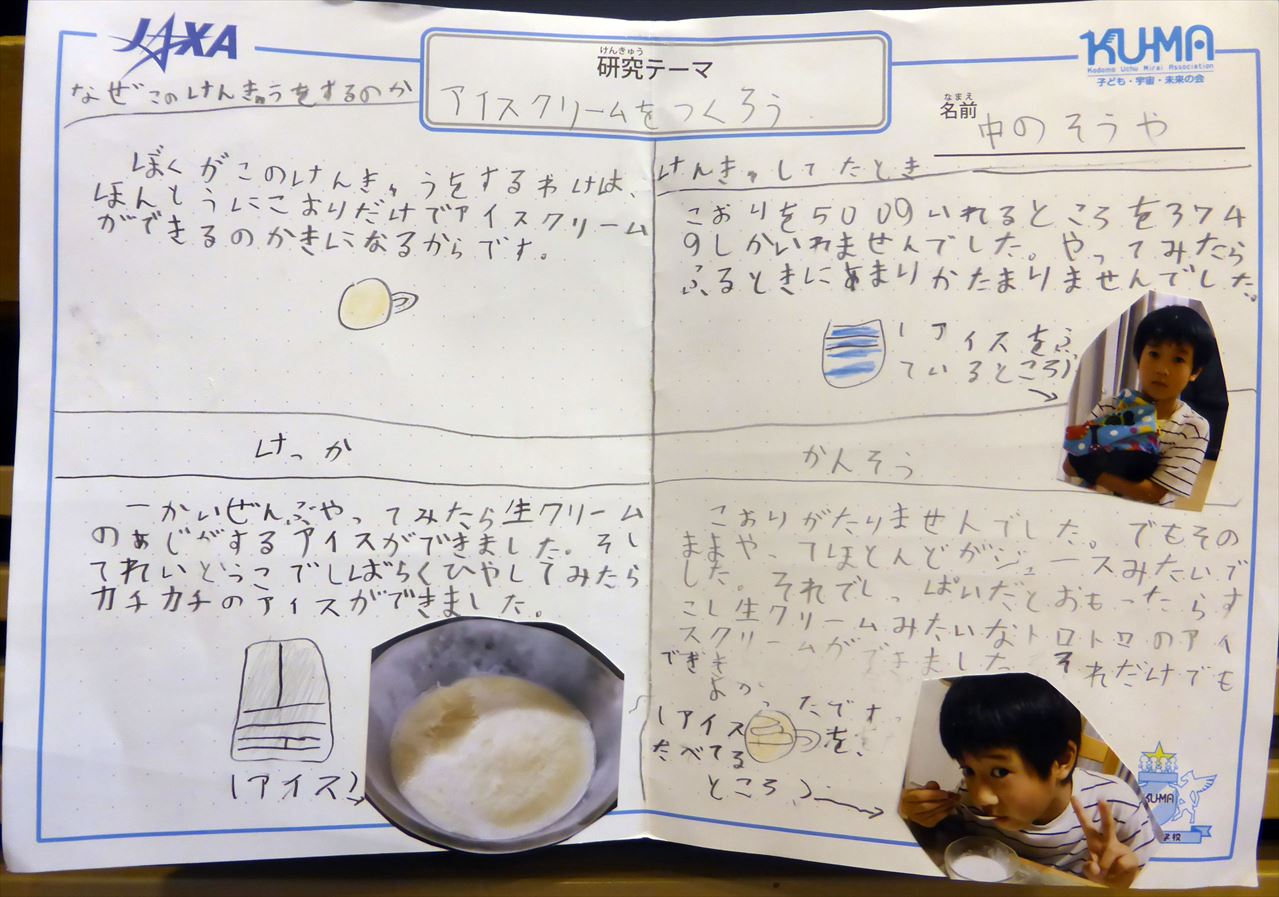 JAXA
けんきゅう
研究テーマ
アイスクリームをつくろう
KU-MA
Kodomo Uchu Mirai Association
子ども・宇宙・未来の会
なまえ
名前
中のそうや
なぜこのけんきゅうをするのか
ぼくがこのけんきゅうをするわけは、
ほんとうにこおりだけでアイスクリーム
ができるのかきになるからです。
けんきゅしてたとき
こおりを500gいれるところを374
gしかいれませんでした。やってみたら
ふるときにあまりかたまりませんでした。
(アイスをふ
ているところ)
けっか
一かいぜんぶやってみたら生クリーム
のあじがするアイスができました。そし
てれいとうこでしばらくひやしてみたら
カチカチのアイスができました。
(アイス)
かんそう
こおりがたりませんでした。でもその
ままやってほとんどがジュースみたいで
した。それでしっぱいだとおもったらす
こし生クリームみたいなトロトロのアイ
スクリームができました。それだけでも
できてよかったです。
(アイス
つを、
たべてる
ところ)
KUMA
学校